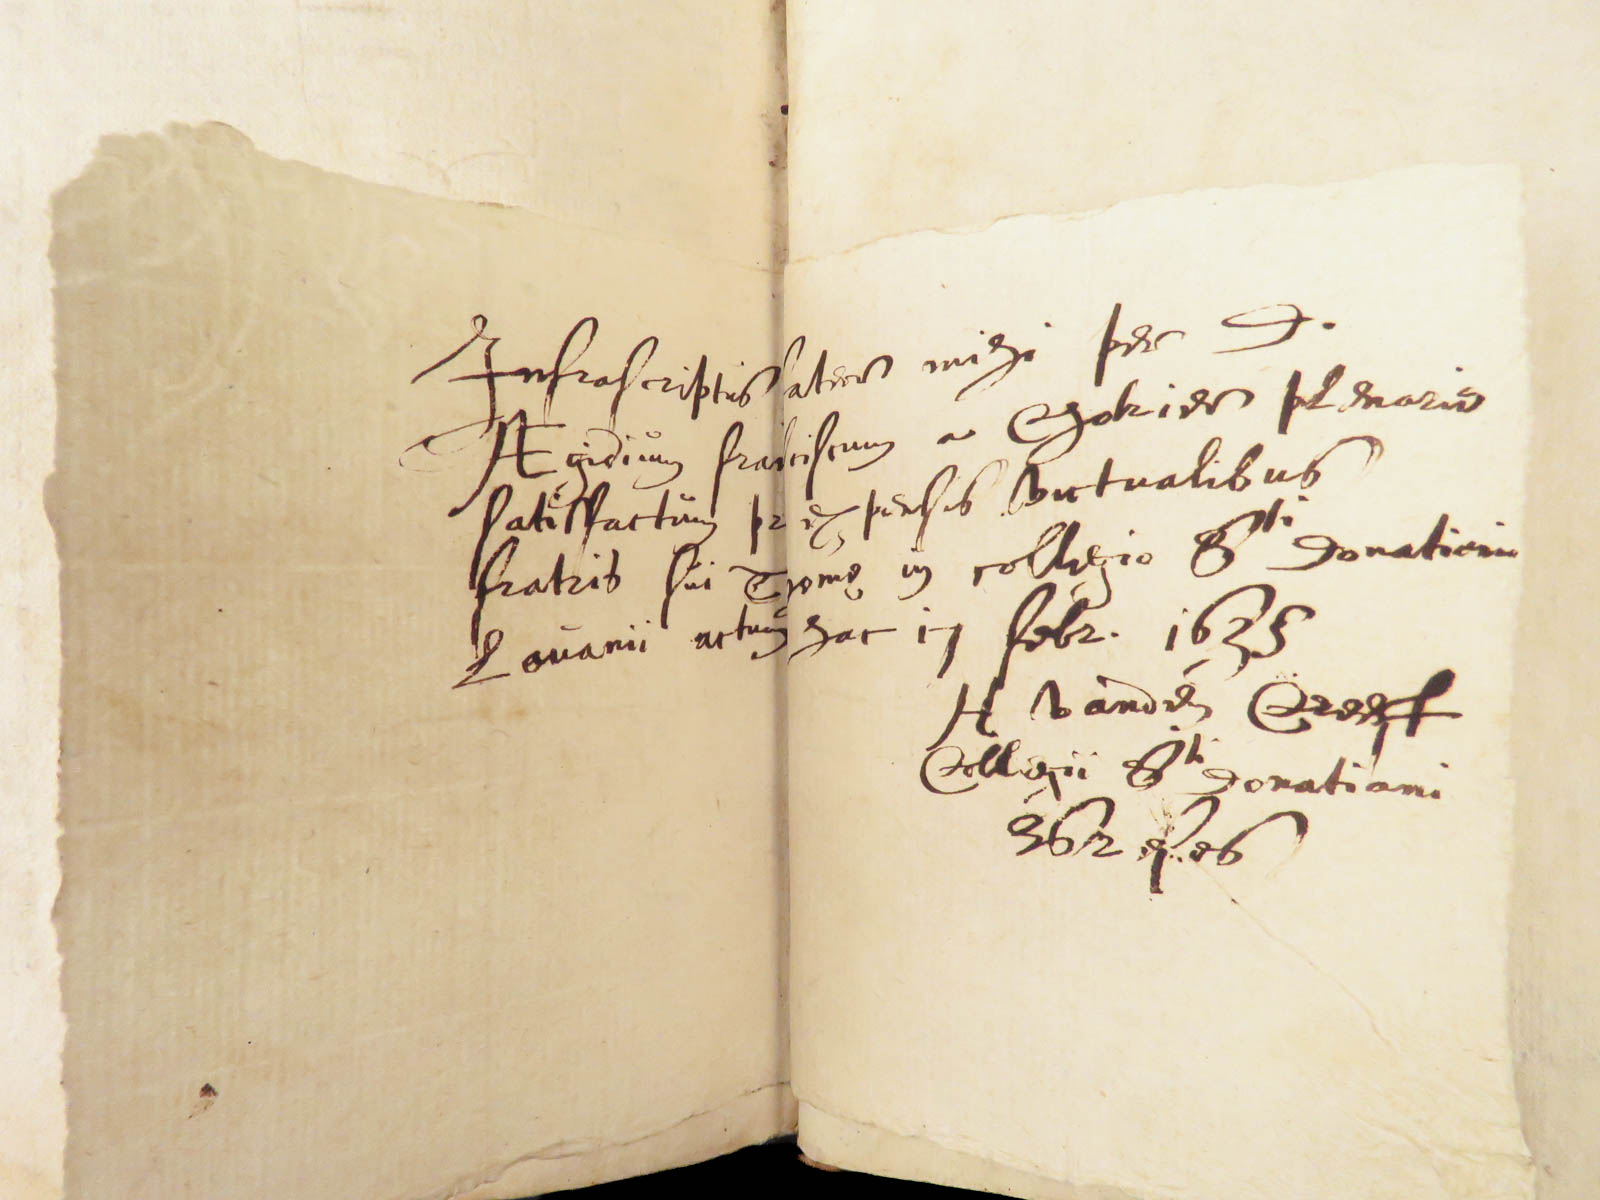 Infrascriptus fateor mihi per D.
Ægidium franciscum a Gobrier plenarie
satisfactum pr expensis victualibus
fratris sui Thomę in collegio Sti donatiani
Lovanii actum hac 17 febr. 1635
H vanden Creeft
Collegii Sti donatiani